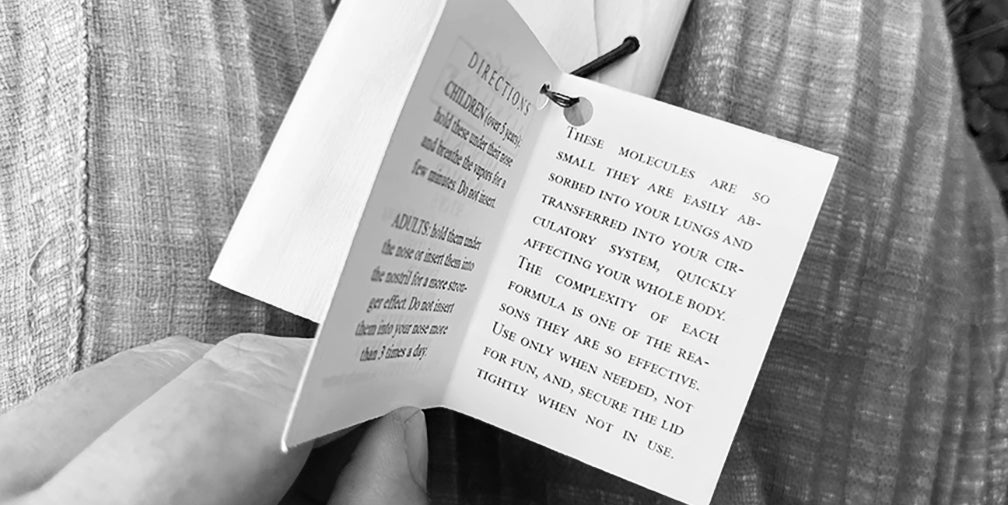 DIRECTIONS
CHILDREN (over 5 years):
hold these under their nose
and breathe the vapors for a
few minutes. Do not insert.
ADULTS: hold them under
the nose or insert them into
the nostril for a more stron-
ger effect. Do not insert
them into your nose more
than 3 times a day.
THESE MOLECULES ARE SO
SMALL THEY ARE EASILY AB-
SORBED INTO YOUR LUNGS AND
TRANSFERRED INTO YOUR CIR-
CULATORY SYSTEM, QUICKLY
AFFECTING YOUR WHOLE BODY.
THE COMPLEXITY OF EACH
FORMULA IS ONE OF THE REA-
SONS THEY ARE SO EFFECTIVE.
USE ONLY WHEN NEEDED, NOT
FOR FUN, AND, SECURE THE LID
TIGHTLY WHEN NOT IN USE.